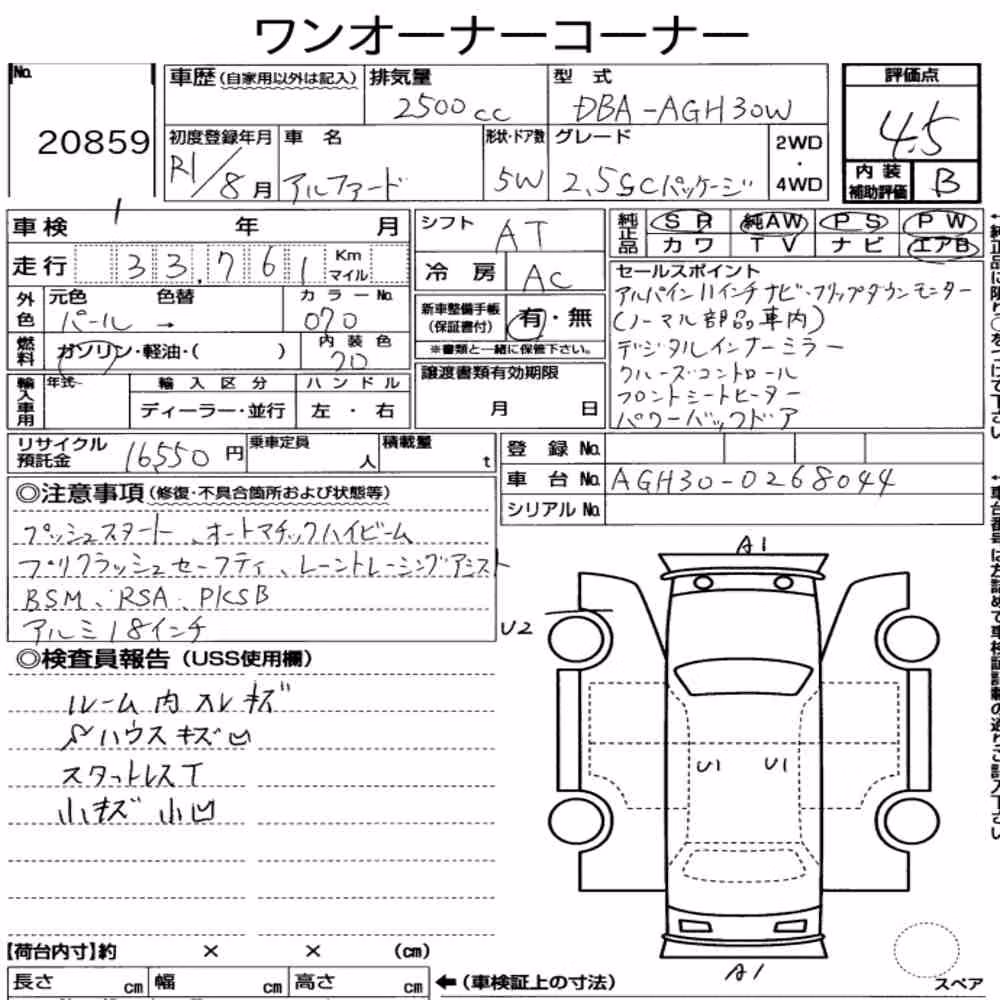 ワンオーナーコーナー
No. 20859
車歴 (自家用以外は記入) 排気量 2500cc 型式 DBA-AGH30W
評価点 4.5
初度登録年月 R1/8月 車名 アルファード 形状・ドア数 5W グレード 2.5SCパッケージ 2WD・4WD
内装補助評価 B
車検 年 月
走行 33,761 Km マイル
外色 元色 パール → 色替 カラーNo. 070
燃料 ガソリン・軽油・( ) 内装色 20
輸入車用 年式 輸入区分 ディーラー・並行 ハンドル 左・右
シフト AT
冷房 AC
新車整備手帳(保証書付) 有・無
※書類と一緒に保管下さい。
譲渡書類有効期限 月 日
純正品 SR 純AW PS PW
カワ TV ナビ エアB
セールスポイント
アルパイン11インチナビ・フリップダウンモニター
(ノーマル部品車内)
デジタルインナーミラー
クルーズコントロール
フロントシートヒーター
パワーバックドア
←純正品に限り○をつけて下さい
リサイクル預託金 16,550円 乗車定員 人 積載量 t
登録No.
車台No. AGH30-0268044
シリアルNo.
←車台番号は左詰めで車検証記載の通りご記入下さい
◎注意事項 (修復・不具合箇所および状態等)
プッシュスタート、オートマチックハイビーム
プリクラッシュセーフティ、レーントレーシングアシスト
BSM、RSA、PKSB
アルミ18インチ
◎検査員報告 (USS使用欄)
ルーム内スレキズ
ハウスキズ凹
スタットレスT
小キズ小凹
A1
U2
U1 U1
A1
スペア
【荷台内寸】約 × × (cm)
長さ cm 幅 cm 高さ cm ←(車検証上の寸法)